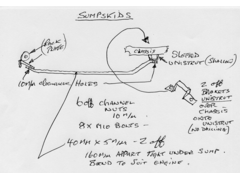 SUMPSKIDS
(BACK PLATE)
CHASSIS
SLOTTED
UNISTRUT (SHALLOW)
10MM CHANNEL
HOLES
2 OFF
BRACKETS
UNISTRUT
OVER
CHASSIS
ONTO
UNISTRUT
(NO DRILLING)
6 OFF CHANNEL
NUTS
10MM
8 X M10 BOLTS -
40MM X 5MM - 2 OFF
160MM APART TIGHT UNDER SUMP.
BEND TO SUIT ENGINE.